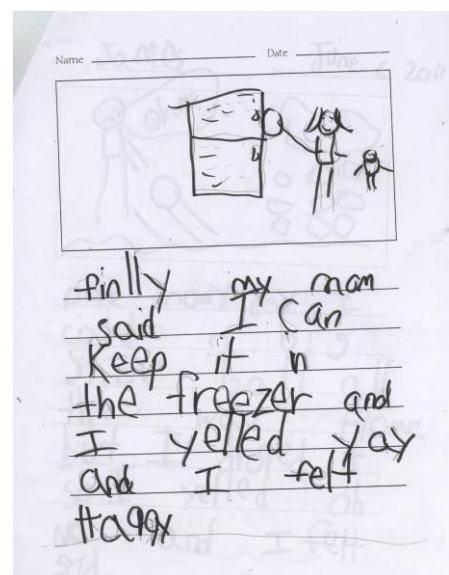 Name Date
finlly my mom
said I can
Keep it n
the freezer and
I yelled yay
and I felt
Happy